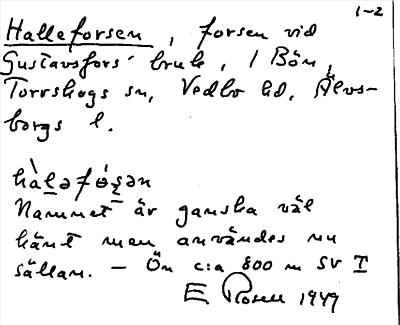 1-2
Halleforsen, forsen vid
Gustavsfors' bruk, i Bön,
Torrskogs sn, Vedbo hd, Älvs-
borgs l.
hàləfó̱s̱ən
Namnet är ganska väl
känt men användes nu
sällan. — Ön c:a 800 m SV I
E Rosell 1949